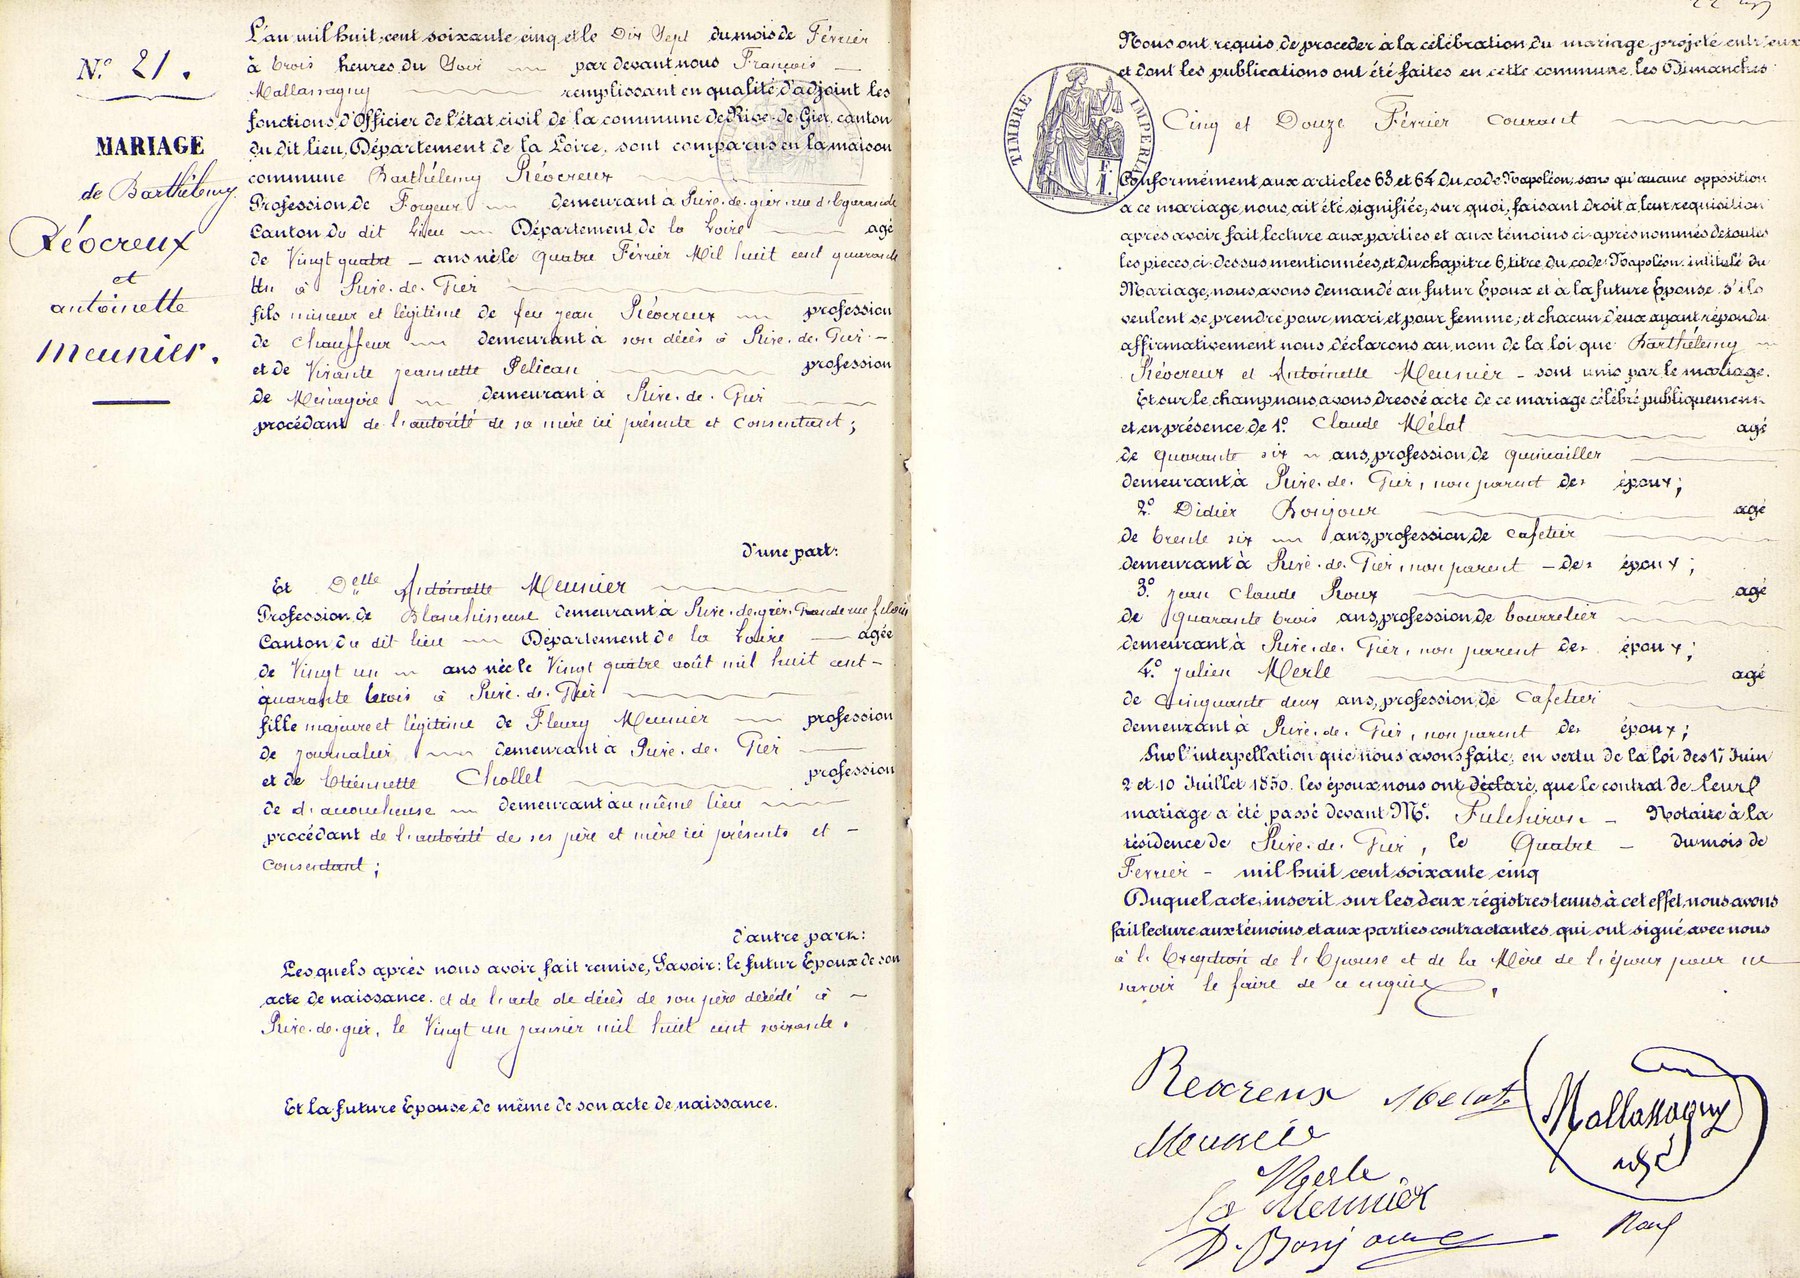 N.° 21.
MARIAGE
de Barthélemy
Réocreux
et
antoinette
Meunier.
L'an mil huit cent soixante cinq et le Dix Sept du mois de Février
à trois heures du Soir par devant nous François
Mallassagny remplissant en qualité d'adjoint les
fonctions d'Officier de l'état civil de la commune de Rive-de-Gier canton
du dit lieu, Département de la Loire, sont comparus en la maison
commune Barthélemy Réocreux
Profession de Forgeur demeurant à Rive-de-gier, rue d'Egarande
Canton du dit Lieu Département de la Loire agé
de Vingt quatre ans né le Quatre Février Mil huit cent quarante
Un à Rive-de-Gier
fils mineur et légitime de feu jean Réocreux profession
de chauffeur demeurant à son décès à Rive-de-Gier
et de Vivante jeannette Pélican profession
de Ménagère demeurant à Rive-de-Gier
procédant de l'autorité de sa mère ici présente et consentant;
d'une part:
Et Delle Antoinette Meunier
Profession de Blanchisseuse demeurant à Rive-de-gier, Grande rue
Canton du dit lieu Département de la Loire agée
de Vingt un ans née le Vingt quatre août mil huit cent
quarante trois à Rive-de-Gier
fille majeure et légitime de Fleury Meunier profession
de journalier demeurant à Rive-de-Gier
et de Etiennette Chollet profession
de d'accoucheuse demeurant au même lieu
procédant de l'autorité de ses père et mère ici présents et
consentant;
d'autre part:
Lesquels après nous avoir fait remise, Savoir: le futur Epoux de son
acte de naissance. et de l'acte de décès de son père décédé à
Rive-de-gier, le Vingt un janvier mil huit cent soixante.
Et la future Epouse de même de son acte de naissance.
Nous ont requis de procéder à la célébration du mariage projeté entr'eux
et dont les publications ont été faites en cette commune les Dimanches
TIMBRE IMPERIAL
Cinq et Douze Février courant
Conformément aux articles 63 et 64 du code Napoléon, sans qu'aucune opposition
à ce mariage nous ait été signifiée, sur quoi, faisant droit à leur requisition
après avoir fait lecture aux parties et aux témoins ci-après nommés de toutes
les pièces ci-dessus mentionnées, et du chapitre 6, titre du code Napoléon intitulé du
Mariage, nous avons demandé au futur Epoux et à la future Epouse s'ils
veulent se prendre pour mari et pour femme; et chacun d'eux ayant répondu
affirmativement nous déclarons au nom de la loi que Barthélemy
Réocreux et Antoinette Meunier sont unis par le mariage.
Et sur le champ nous avons dressé acte de ce mariage célébré publiquement
et en présence de 1° Claude Mélat agé
de quarante six ans, profession de quincailler
demeurant à Rive-de-Gier, non parent des époux;
2° Didier Bonjour agé
de trente six ans, profession de cafetier
demeurant à Rive-de-Gier, non parent des époux;
3° jean Claude Roux agé
de quarante trois ans, profession de bourrelier
demeurant à Rive-de-Gier, non parent des époux;
4° julien Merle agé
de Cinquante deux ans, profession de Cafetier
demeurant à Rive-de-Gier, non parent des époux;
Sur l'interpellation que nous avons faite, en vertu de la loi des 17 Juin
2 et 10 Juillet 1850. les époux nous ont déclaré, que le contrat de leur
mariage a été passé devant M.e Fulchiron Notaire à la
résidence de Rive-de-Gier, le Quatre du mois de
Février mil huit cent soixante cinq
Duquel acte, inscrit sur les deux régistres tenus à cet effet, nous avons
fait lecture aux témoins, et aux parties contractantes qui ont signé avec nous
à l'Exception de l'Epouse et de la Mère de l'époux pour ne
savoir le faire de ce enquis.
Reocreux Melat Mallassagny
adj
Meunier
Merle
fo Meunier
D. Bonjour Roux